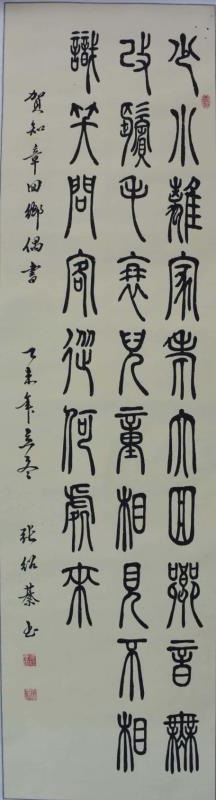 少小離家老大回鄉音無
改鬢毛衰兒童相見不相
識笑問客從何處來
賀知章回鄉偶書 乙未年冬 張紹書